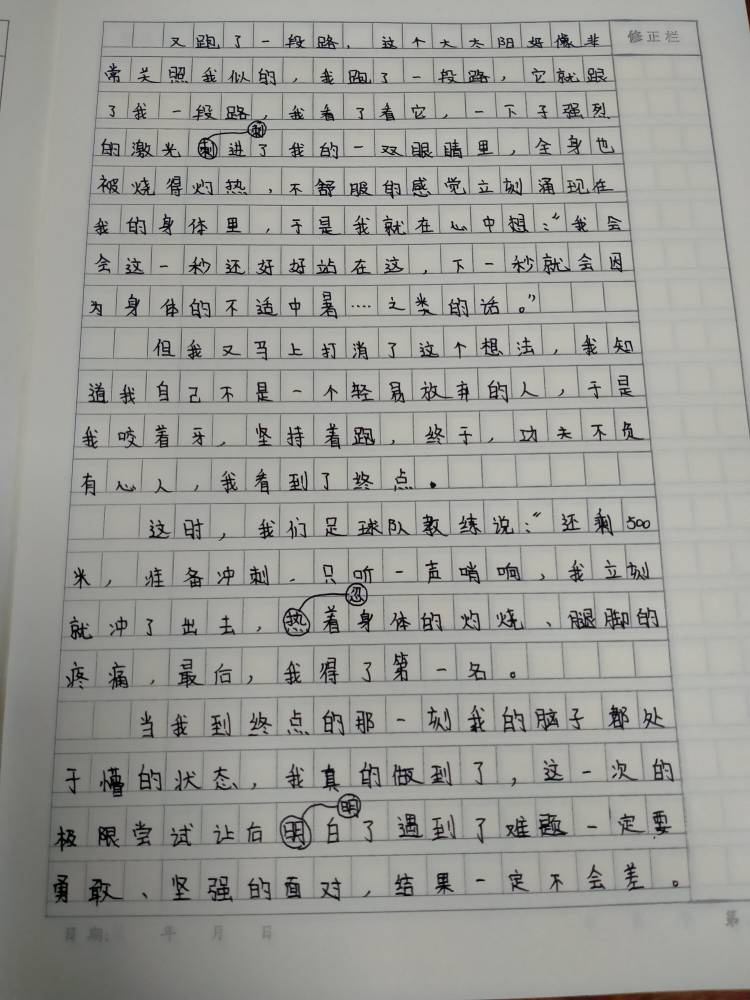 又跑了一段路，这个大太阳好像非 修正栏
常关照我似的，我跑了一段路，它就跟
了我一段路，我看了看它，一下子强烈
刺
的激光刺进了我的一双眼睛里，全身也
被烧得灼热，不舒服的感觉立刻涌现在
我的身体里，于是我就在心中想：“我会
会这一秒还好好站在这，下一秒就会因
为身体的不适中暑……之类的话。”
但我又马上打消了这个想法，我知
道我自己不是一个轻易放弃的人，于是
我咬着牙，坚持着跑，终于，功夫不负
有心人，我看到了终点。
这时，我们足球队教练说：“还剩500
米，准备冲刺．只听一声哨响，我立刻
忍
就冲了出去，热着身体的灼烧、腿脚的
疼痛，最后，我得了第一名。
当我到终点的那一刻我的脑子都处
于懵的状态，我真的做到了，这一次的
明
极限尝试让后明白了遇到了难题一定要
勇敢、坚强的面对，结果一定不会差。
日期： 年 月 日 第